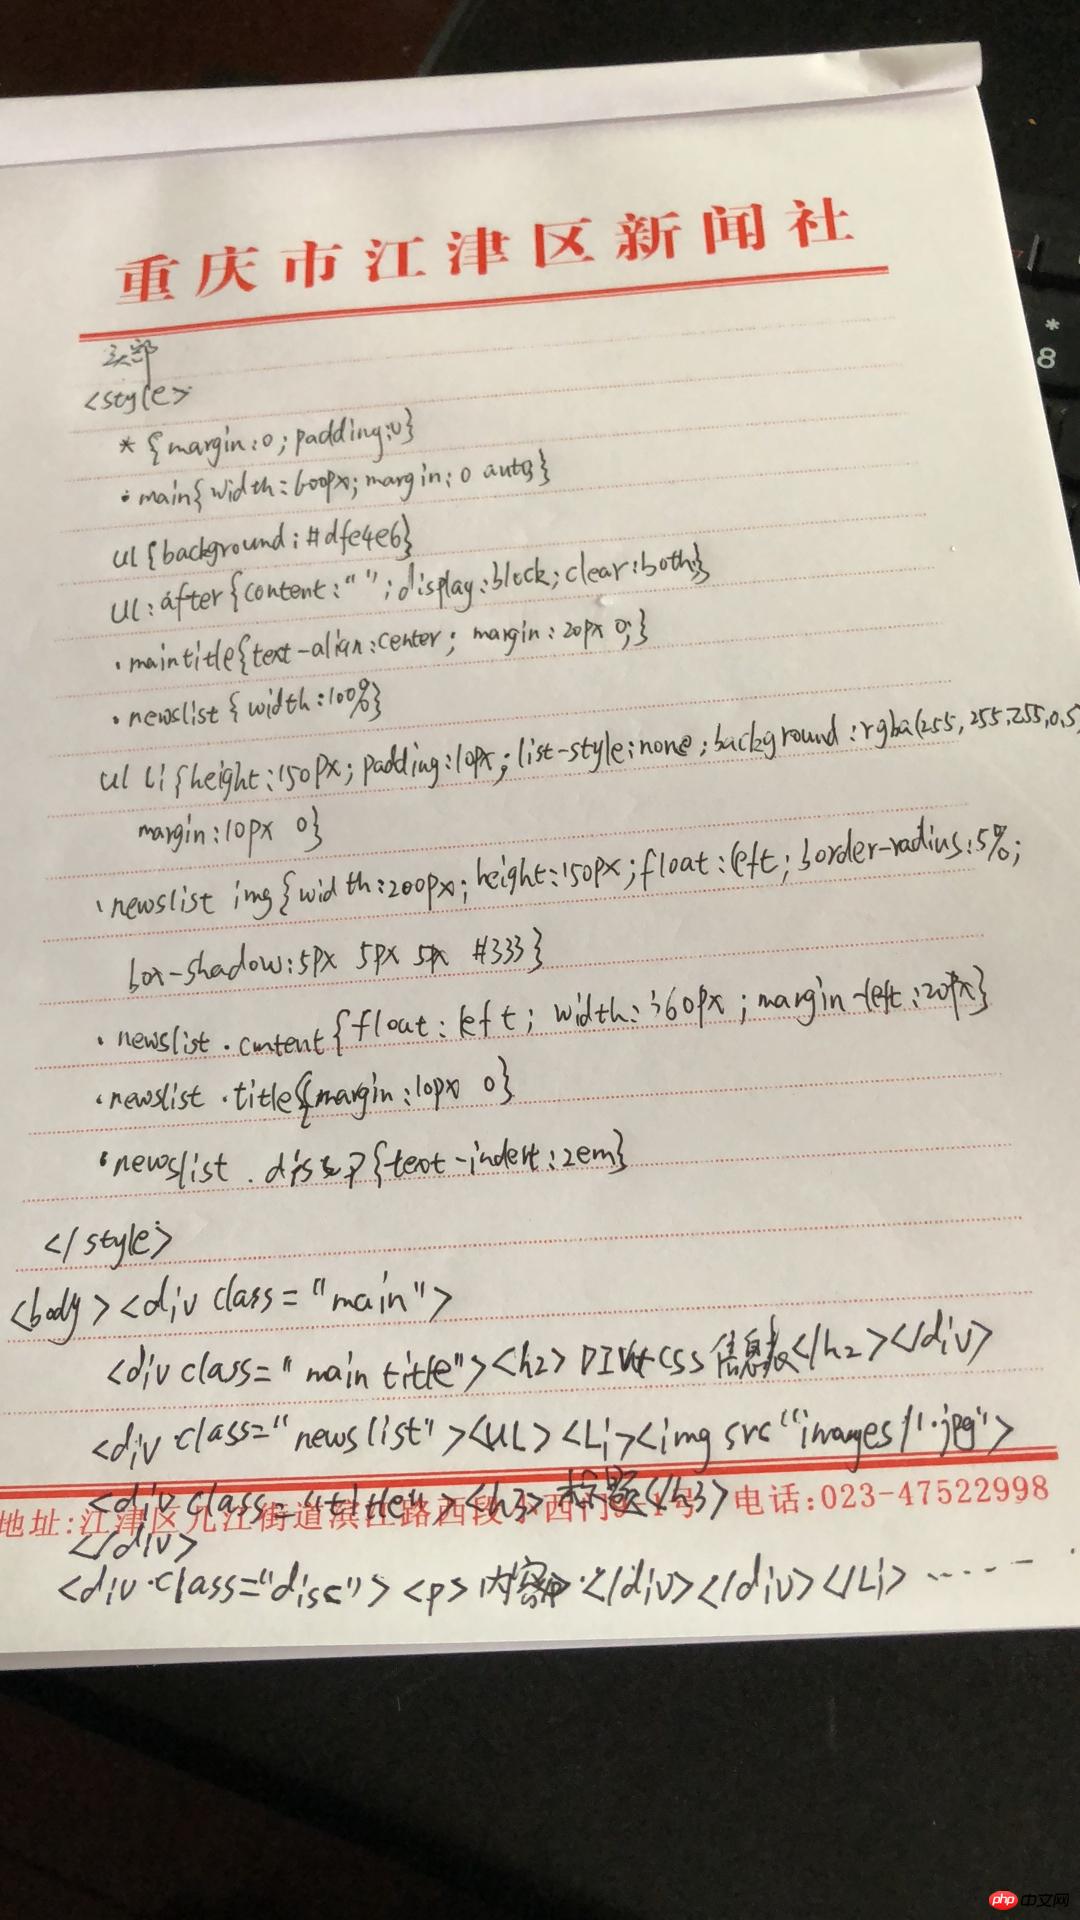 重庆市江津区新闻社
头部
<style>
* {margin:0; padding:0}
.main{width:600px; margin:0 auto}
ul{background:#dfe4e6}
ul:after{content:" "; display:block; clear:both;}
.maintitle{text-align:center; margin:20px 0;}
.newslist{width:100%}
ul li{height:150px; padding:10px; list-style:none; background:rgba(255,255,255,0.5)
margin:10px 0}
.newslist img{width:200px; height:150px; float:left; border-radius:5%;
box-shadow:5px 5px 5px #333}
.newslist .content{float:left; width:360px; margin-left:20px}
.newslist .title{margin:10px 0}
.newslist .disc p{text-indent:2em}
</style>
<body><div class="main">
<div class="main title"><h2>DIV+CSS信息表</h2></div>
<div class="newslist"><ul><li><img src"images/1.jpg">
<div class="title"><h3>标题</h3>
地址:江津区几江街道滨江路西段小西门 号 电话:023-47522998
</div>
<div class="disc"><p>内容</div></div></li>······
*
8
php中文网